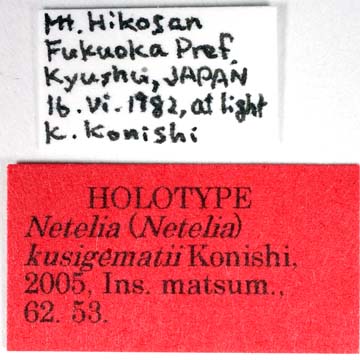 Mt. Hikosan
Fukuoka Pref.
Kyushu, JAPAN
16. vi. 1982, at light
K. Konishi
HOLOTYPE
Netelia (Netelia)
kusigematii Konishi,
2005, Ins. matsum.,
62. 53.